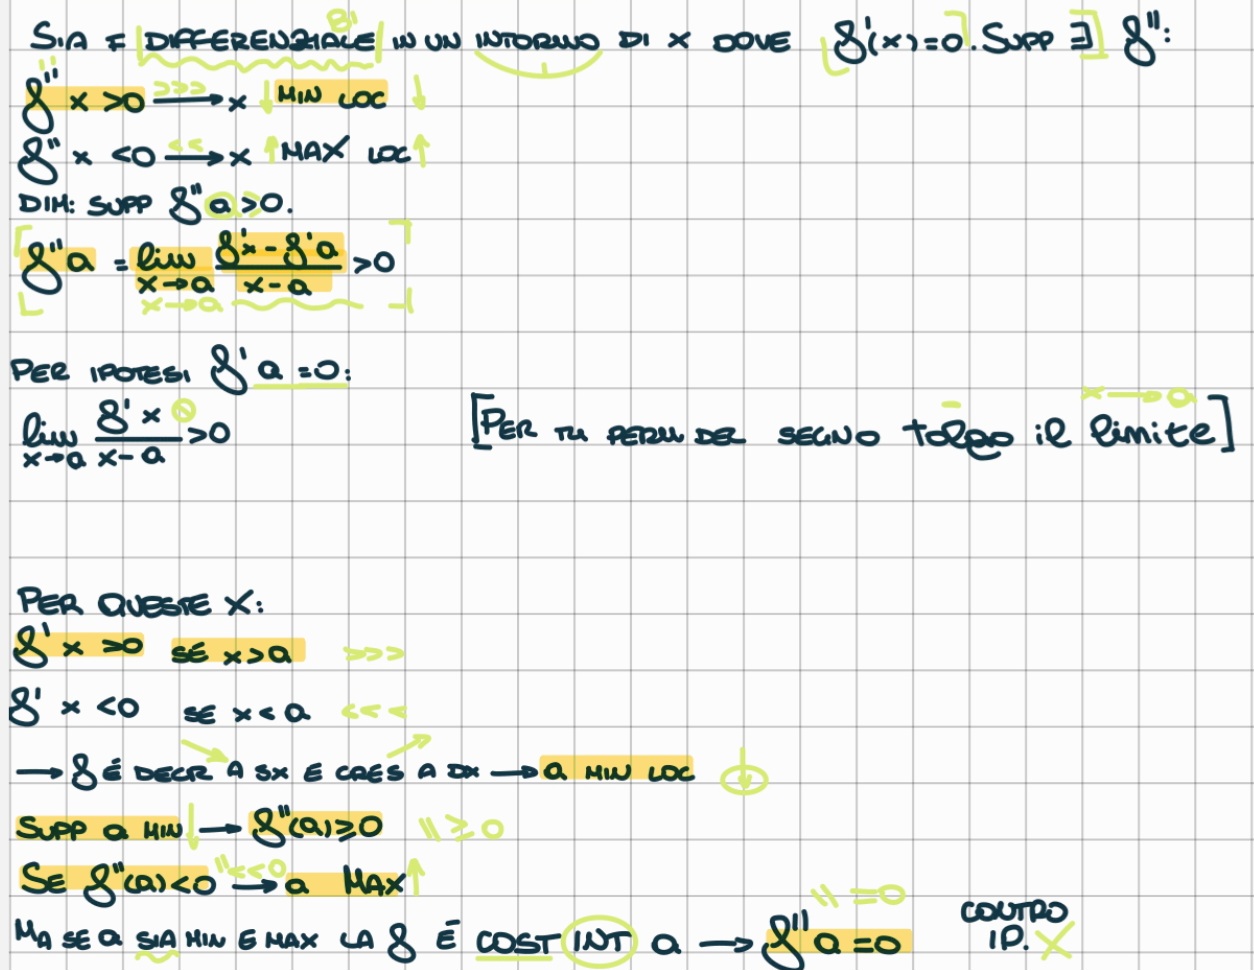 SIA F DIFFERENZIALE IN UN INTORNO DI X DOVE f'(x)=0. SUPP ∃ f'':
f'' x >0 >>> → x ↓ MIN LOC ↓
f'' x <0 << → x ↑ MAX LOC ↑
DIM: SUPP f'' a >0.
f'' a = lim x→a (f'x - f'a)/(x-a) >0
x→a
PER IPOTESI f' a =0:
lim x→a (f' x)/(x-a) >0 [PER TH PERM DEL SEGNO tolgo il limite] x→a
PER QUESTE X:
f' x >0 SE x>a >>>
f' x <0 SE x<a <<<
→ f É DECR A SX E CRES A DX → a MIN LOC ↓
SUPP a MIN ↓ → f''(a)≥0 \\ ≥0
SE f''(a)<0 "<<0 → a MAX ↑
MA SE a SIA MIN E MAX LA f É COST INT a → f'' a =0 \\ =0 CONTRO IP. X